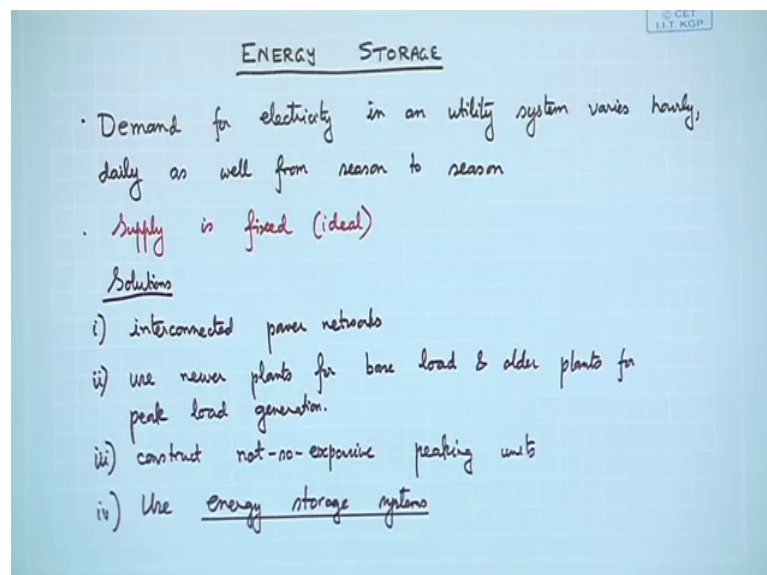 © CET
I.I.T. KGP
ENERGY STORAGE
· Demand for electricity in an utility system varies hourly,
daily as well from season to season
· Supply is fixed (ideal)
Solutions
i) interconnected power networks
ii) use newer plants for base load & older plants for
peak load generation.
iii) construct not-so-expensive peaking units
iv) Use energy storage systems